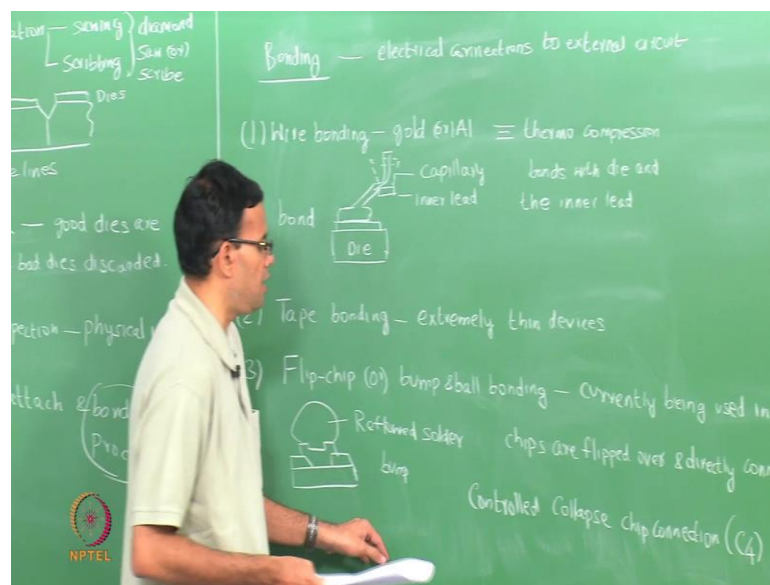 ation — sawing
scribbing
diamond
saw (or)
scribe
Dies
lines
— good dies are
bad dies discarded.
pection — physical
attach & bond
Proc
Bonding — electrical connections to external circuit
(1) Wire bonding — gold (or) Al ≡ thermo compression
bonds with die and
the inner lead
capillary
inner lead
bond
Die
Tape bonding — extremely thin devices
3) Flip-chip (or) bump & ball bonding — currently being used in
Reflowed solder
bump
chips are flipped over & directly conn
Controlled Collapse chip connection (C4)
NPTEL